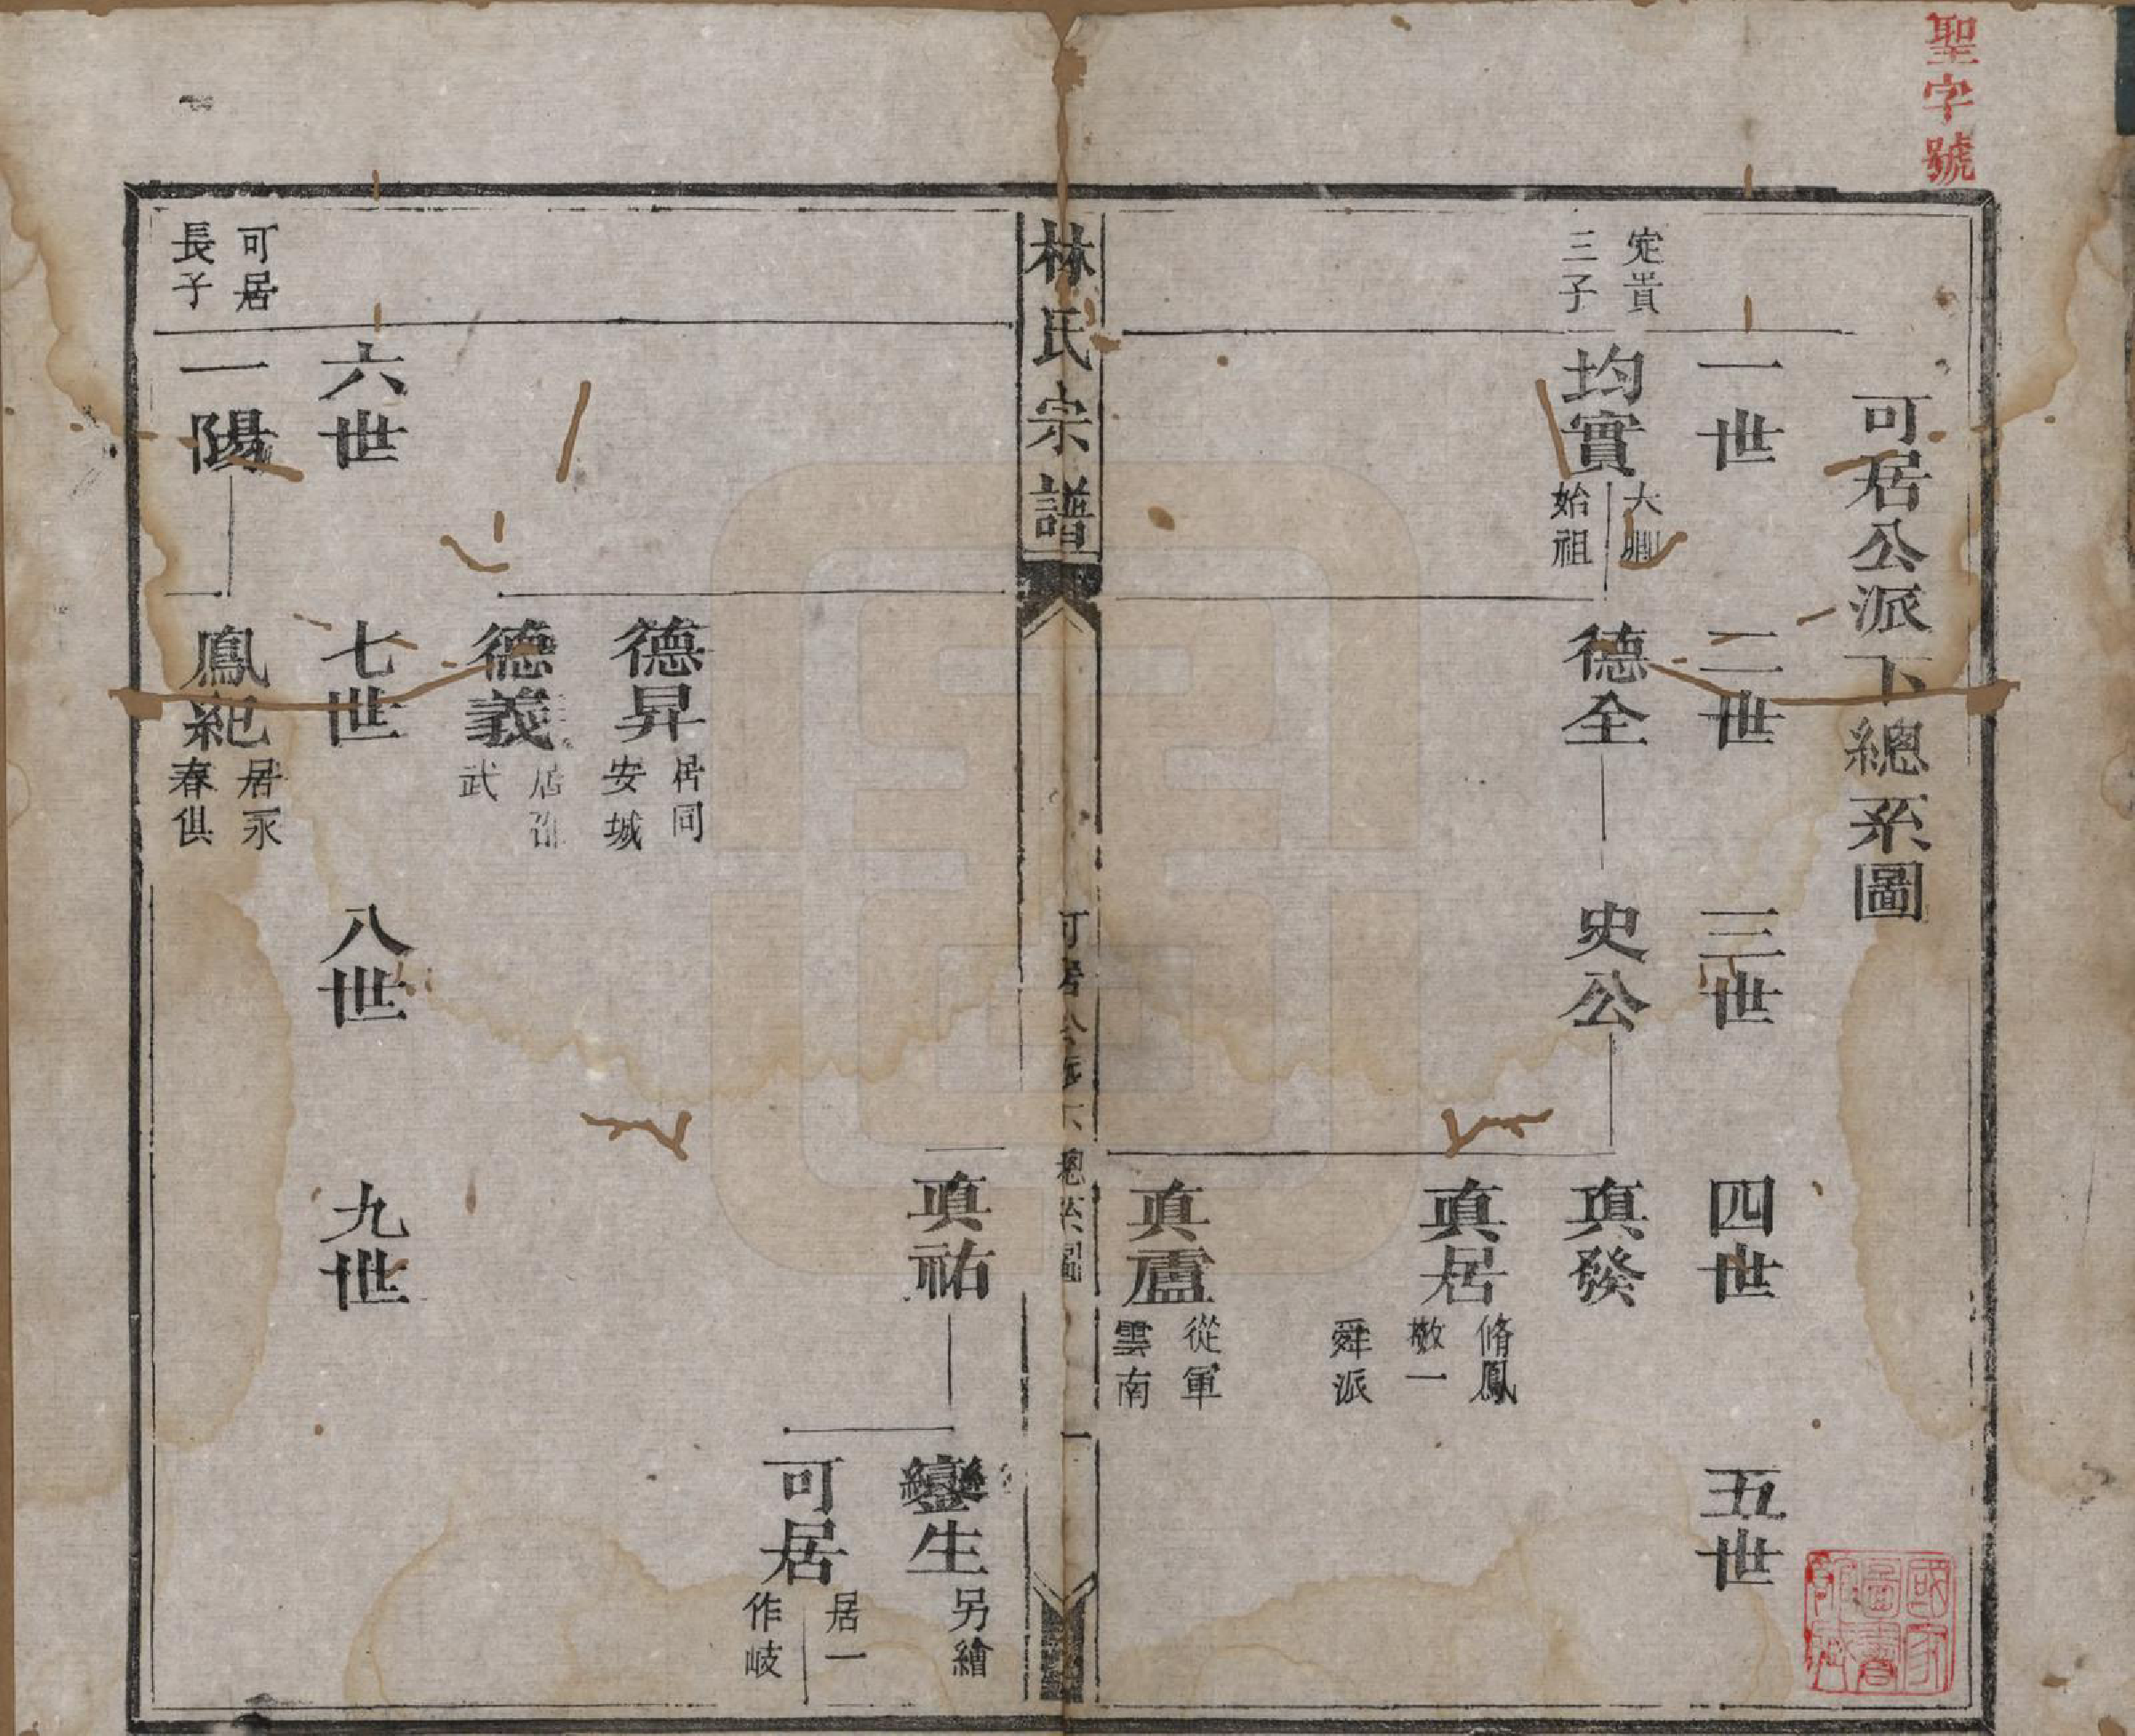 聖字號
可居公派下總系圖
一世
二世
三世
四世
五世
定貴
三子
均實
始祖
德全
史公
真發
真居
脩鳳
敬一
舜派
真盧
從軍
雲南
林氏宗譜
可居公派下總系圖
一
真祐
鑾生
另繪
可居
居一
作岐
德昇
居同
安城
德義
居邵
武
六世
七世
八世
九世
可居
長子
一陽
鳳紀
居永
春俱
國家
圖書